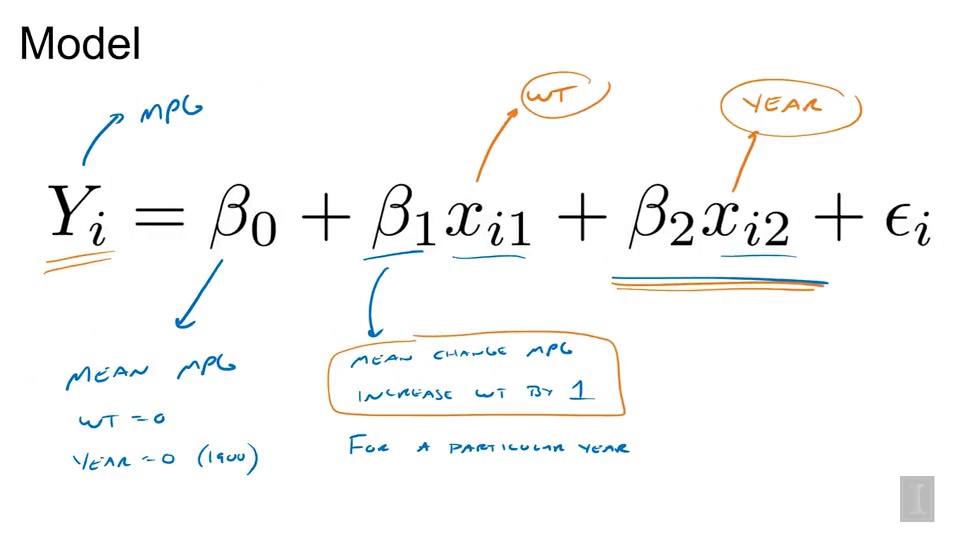 Model
MPG
WT
YEAR
Yᵢ = β₀ + β₁xᵢ₁ + β₂xᵢ₂ + ϵᵢ
MEAN MPG
WT = 0
YEAR = 0 (1900)
MEAN CHANGE MPG
INCREASE WT BY 1
FOR A PARTICULAR YEAR
I